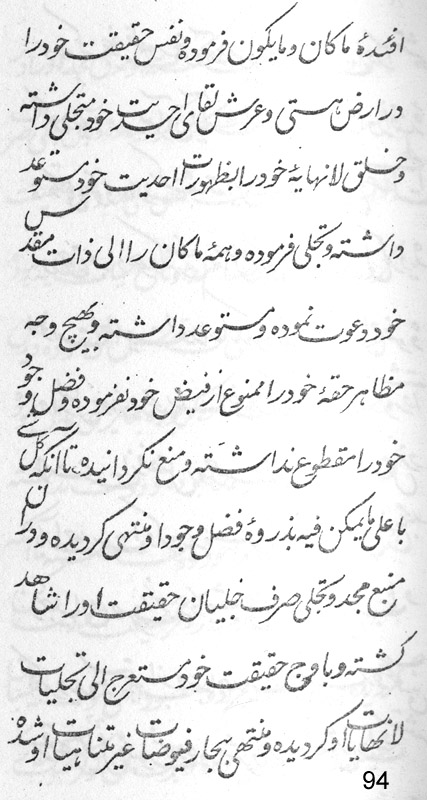 افئدهٔ ماکان و مایکون فرموده و نفس حقیقت خود را
در ارض هستی و عرش لقای احدیت خود متجلی داشته
و خلق لانهایهٔ خود را بظهورات احدیت خود مستوعد
داشته و تجلی فرموده و همهٔ ماکان را الی ذات مقدس
خود دعوت نموده و مستوعد داشته و بهیچ وجه
مظاهر حقهٔ خود را ممنوع از فیض خود نفرموده و فضل وجود
خود را منقطوع نداشته و منع نگردانیده تا آنکه کل شیء
باعلی مایمکن فیه بذروهٔ فضل وجود او منتهی گردیده و در آن
منبع مجد و تجلی صرف حقیقت او را شاهد
گشته و باوج حقیقت خود مستعرج الی تجلیات
لانهایات او گردیده و منتهی ببحار فیوضات غیر متناهیات او شده
94